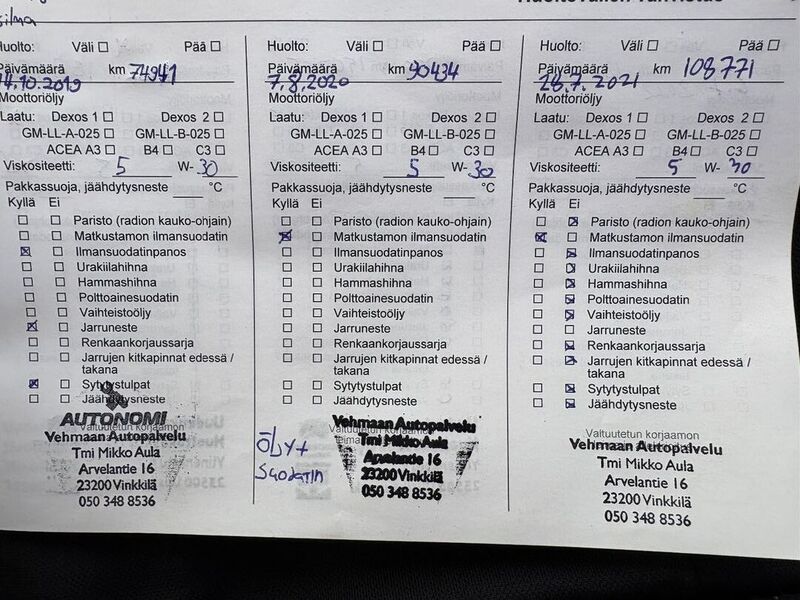 silma
Huoltovälien vahvistus
Huolto: Väli Pää
Päivämäärä km 74941
14.10.2019
Moottoriöljy
Laatu: Dexos 1 Dexos 2
GM-LL-A-025 GM-LL-B-025
ACEA A3 B4 C3
Viskositeetti: 5 W- 30
Pakkassuoja, jäähdytysneste °C
Kyllä Ei
Paristo (radion kauko-ohjain)
Matkustamon ilmansuodatin
Ilmansuodatinpanos
Urakiilahihna
Hammashihna
Polttoainesuodatin
Vaihteistoöljy
Jarruneste
Renkaankorjaussarja
Jarrujen kitkapinnat edessä /
takana
Sytytystulpat
Jäähdytysneste
AUTONOMI
Valtuutetun korjaamon
Vehmaan Autopalvelu
Tmi Mikko Aula
Arvelantie 16
23200 Vinkkilä
050 348 8536
Huolto: Väli Pää
Päivämäärä km 90434
7.8.2020
Moottoriöljy
Laatu: Dexos 1 Dexos 2
GM-LL-A-025 GM-LL-B-025
ACEA A3 B4 C3
Viskositeetti: 5 W- 30
Pakkassuoja, jäähdytysneste °C
Kyllä Ei
Paristo (radion kauko-ohjain)
Matkustamon ilmansuodatin
Ilmansuodatinpanos
Urakiilahihna
Hammashihna
Polttoainesuodatin
Vaihteistoöljy
Jarruneste
Renkaankorjaussarja
Jarrujen kitkapinnat edessä /
takana
Sytytystulpat
Jäähdytysneste
Öljyt
Suodatin
Vehmaan Autopalvelu
Tmi Mikko Aula
Arvelantie 16
23200 Vinkkilä
050 348 8536
Huolto: Väli Pää
Päivämäärä km 108771
28.7.2021
Moottoriöljy
Laatu: Dexos 1 Dexos 2
GM-LL-A-025 GM-LL-B-025
ACEA A3 B4 C3
Viskositeetti: 5 W- 30
Pakkassuoja, jäähdytysneste °C
Kyllä Ei
Paristo (radion kauko-ohjain)
Matkustamon ilmansuodatin
Ilmansuodatinpanos
Urakiilahihna
Hammashihna
Polttoainesuodatin
Vaihteistoöljy
Jarruneste
Renkaankorjaussarja
Jarrujen kitkapinnat edessä /
takana
Sytytystulpat
Jäähdytysneste
Valtuutetun korjaamon
Vehmaan Autopalvelu
Tmi Mikko Aula
Arvelantie 16
23200 Vinkkilä
050 348 8536